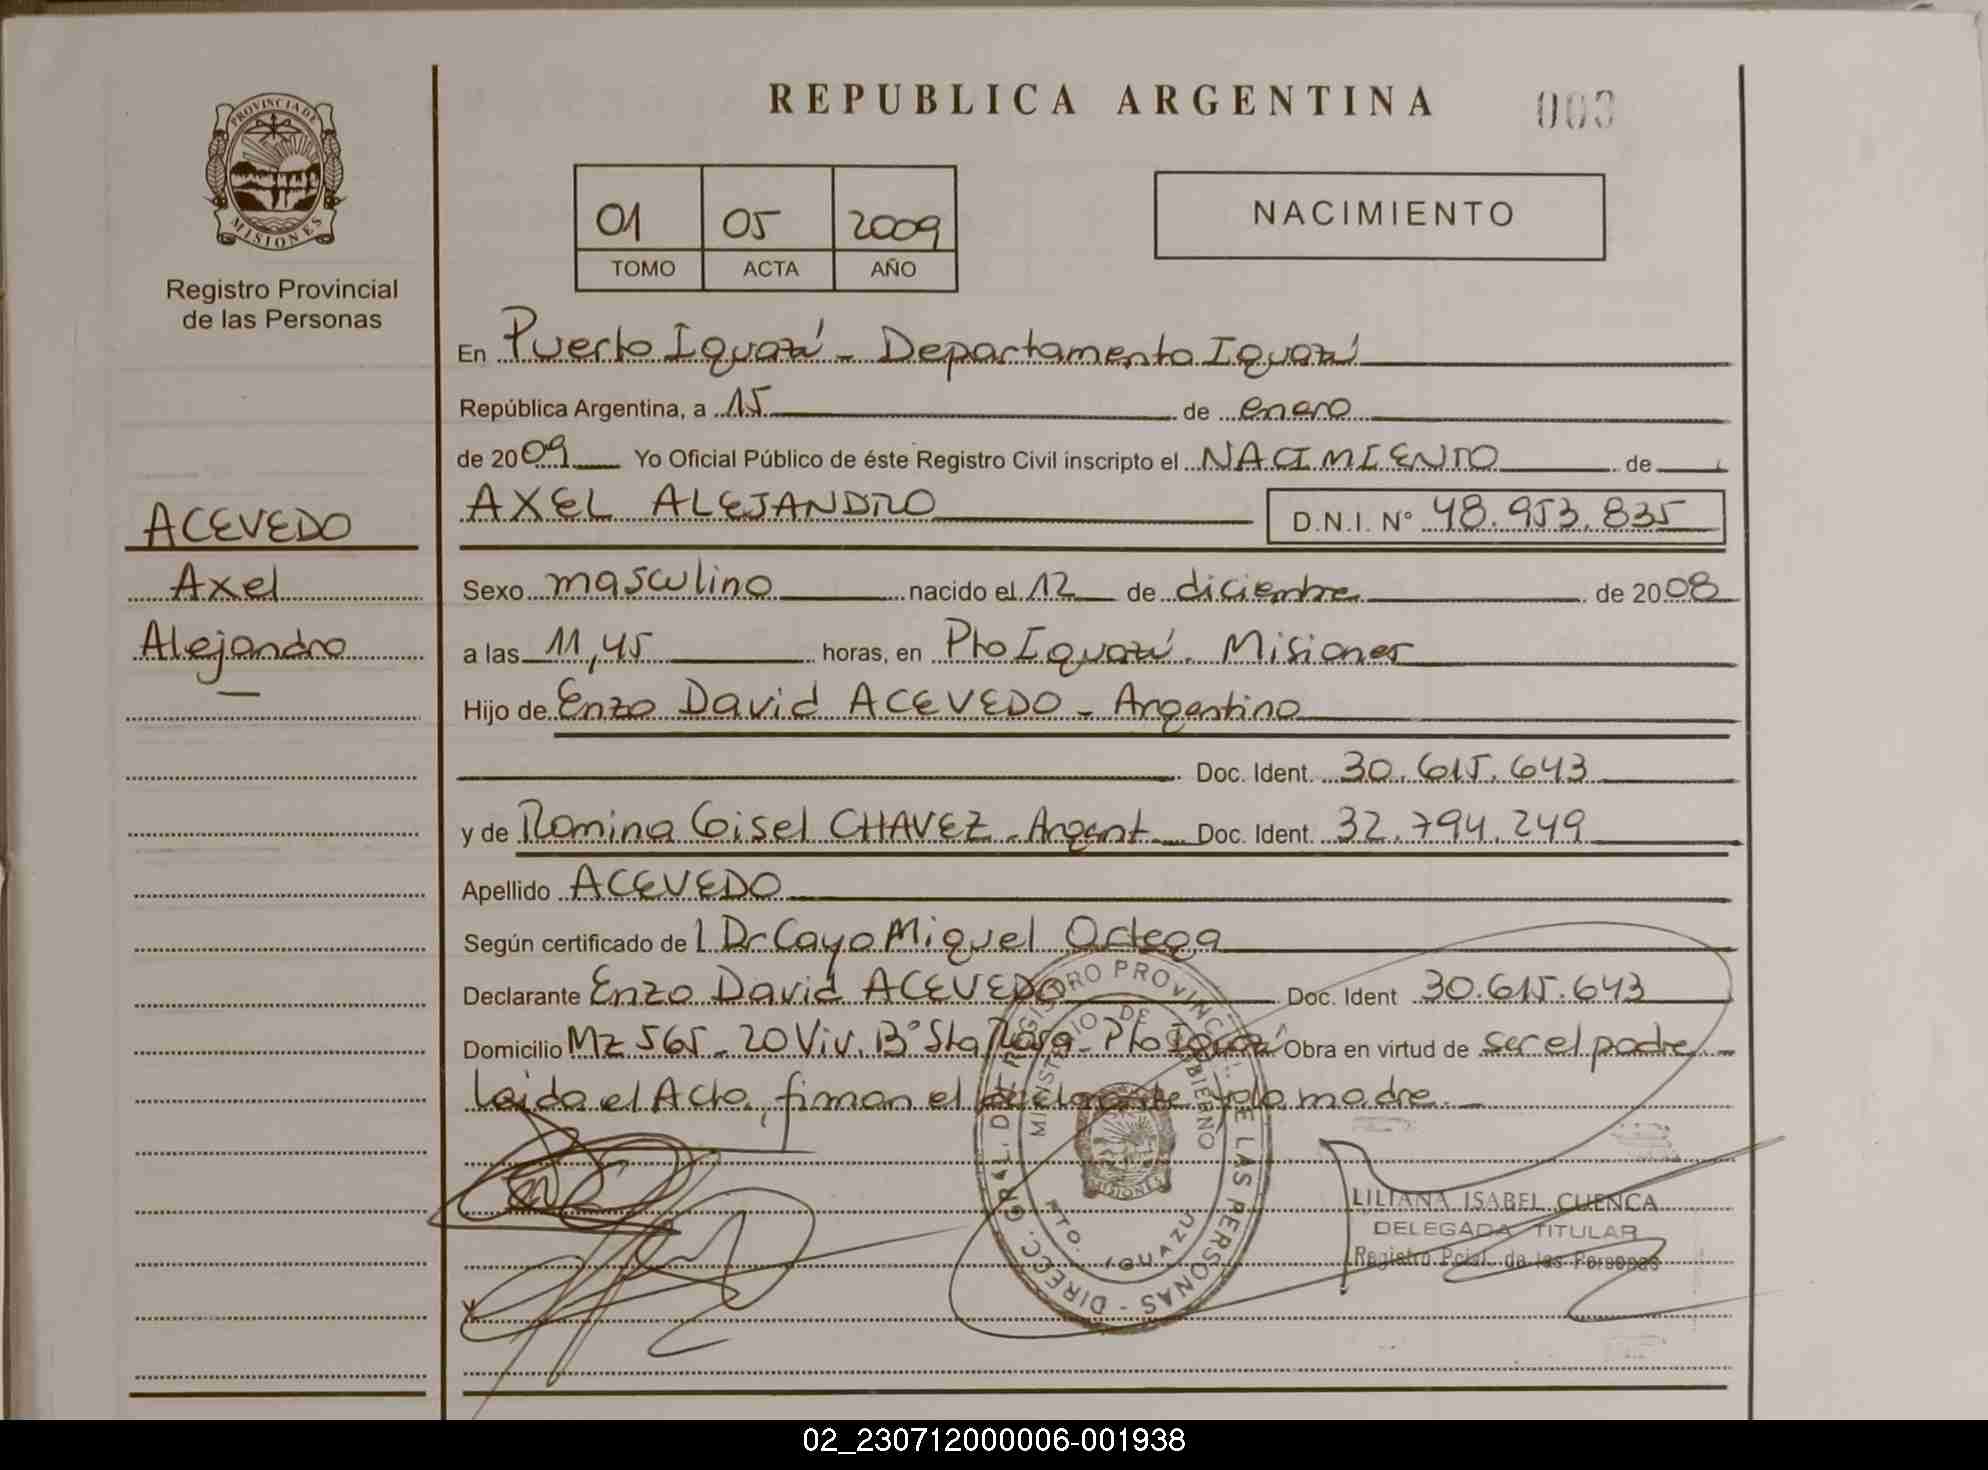 REPUBLICA ARGENTINA
003
PROVINCIA DE
MISIONES
Registro Provincial
de las Personas
01 05 2009
TOMO ACTA AÑO
NACIMIENTO
En Puerto Iguazú - Departamento Iguazú
República Argentina, a 15 de enero
de 2009 Yo Oficial Público de éste Registro Civil inscripto el NACIMIENTO de
AXEL ALEJANDRO D.N.I. N° 48.953.835
ACEVEDO
Axel
Alejandro
Sexo masculino nacido el 12 de diciembre de 2008
a las 11,45 horas, en Pto Iguazú. Misiones
Hijo de Enzo David ACEVEDO - Argentino
Doc. Ident. 30.615.643
y de Romina Gisel CHAVEZ - Argent. Doc. Ident. 32.794.249
Apellido ACEVEDO
Según certificado de l Dr Cayo Miguel Ortega
Declarante Enzo David ACEVEDO Doc. Ident 30.615.643
Domicilio Mz 565 - 20 Viv. B° Sta Rosa - Pto Iguazú Obra en virtud de ser el padre
Leida el Acta, firman el declarante y la madre. -
DIRECC. GRAL. DEL REGISTRO PROVINCIAL DE LAS PERSONAS -
MINISTERIO DE GOBIERNO
PTO. IGUAZU
MISIONES
LILIANA ISABEL CUENCA
DELEGADA TITULAR
Registro Pcial. de las Personas
02_230712000006-001938